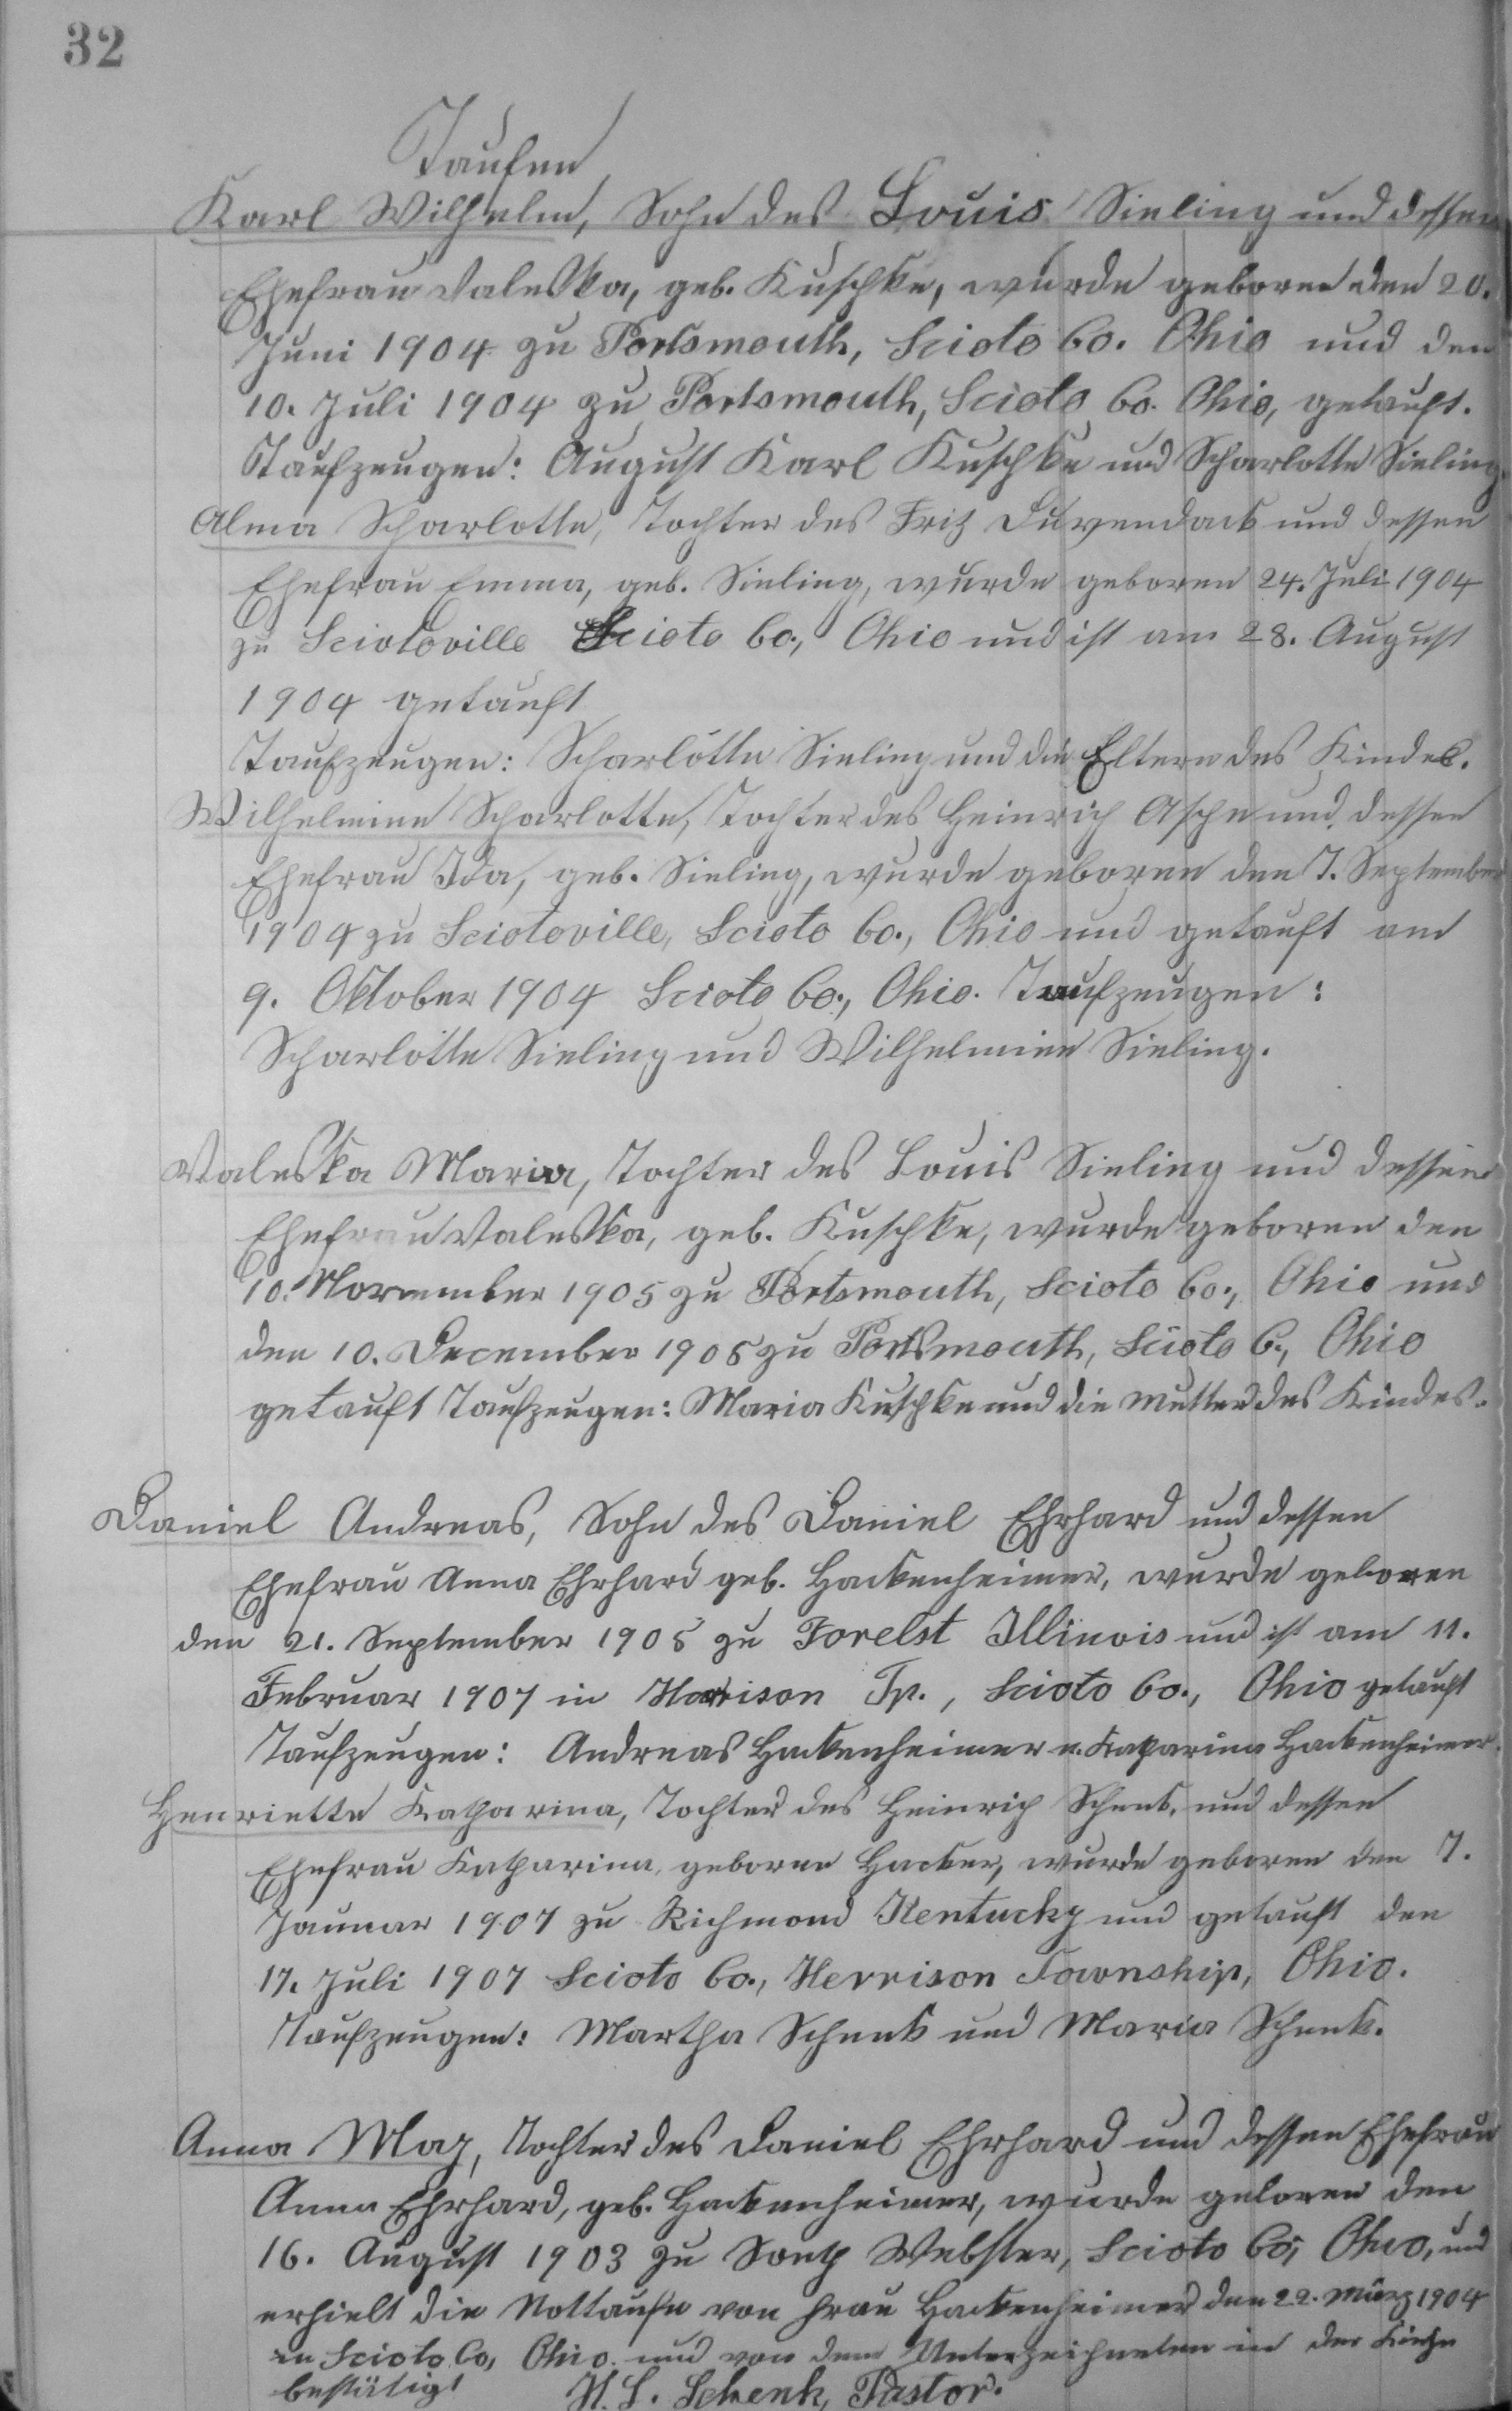 32
Taufen
Karl Wilhelm, Sohn des Louis Sieling und dessen
Ehefrau Valeska, geb. Kuschke, wurde geboren den 20.
Juni 1904 zu Portsmouth, Scioto Co. Ohio und den
10. Juli 1904 zu Portsmouth, Scioto Co. Ohio, getauft.
Taufzeugen: August Karl Kuschke und Scharlotte Sieling.
Alma Scharlotte, Tochter des Fritz Duvendack und dessen
Ehefrau Emma, geb. Sieling, wurde geboren 24. Juli 1904
zu Sciotoville Scioto Co., Ohio und ist am 28. August
1904 getauft
Taufzeugen: Scharlotte Sieling und die Eltern des Kindes.
Wilhelmine Scharlotte, Tochter des Heinrich Asche und dessen
Ehefrau Ida, geb. Sieling, wurde geboren den 7. September
1904 zu Sciotoville, Scioto Co., Ohio und getauft am
9. Oktober 1904 Scioto Co., Ohio. Taufzeugen:
Scharlotte Sieling und Wilhelmine Sieling.
Valeska Maria, Tochter des Louis Sieling und dessen
Ehefrau Valeska, geb. Kuschke, wurde geboren den
10. November 1905 zu Portsmouth, Scioto Co., Ohio und
den 10. December 1905 zu Portsmouth, Scioto C., Ohio
getauft Taufzeugen: Maria Kuschke und die Mutter des Kindes.
Daniel Andreas, Sohn des Daniel Ehrhard und dessen
Ehefrau Anna Ehrhard geb. Hackenheimer, wurde geboren
den 21. September 1905 zu Forelst Illinois und ist am 11.
Februar 1907 in Harrison Tp., Scioto Co., Ohio getauft
Taufzeugen: Andreas Hackenheimer u. Katharina Hackenheimer.
Henriette Katharina, Tochter des Heinrich Schenk, und dessen
Ehefrau Katharina, geborne Hacker, wurde geboren den 7.
Januar 1907 zu Richmond Kentucky und getauft den
17. Juli 1907 Scioto Co., Herrison Township, Ohio.
Taufzeugen: Martha Schenk und Maria Schenk.
Anna May, Tochter des Daniel Ehrhard und dessen Ehefrau
Anna Ehrhard, geb. Hackenheimer, wurde geboren den
16. August 1903 zu South Webster, Scioto Co., Ohio, und
erhielt die Nottaufe von Frau Hackenheimer den 22. März 1904
in Scioto Co, Ohio. und von dem Unterzeichneten in der Kirche
bestätigt H. L. Schenk, Pastor.